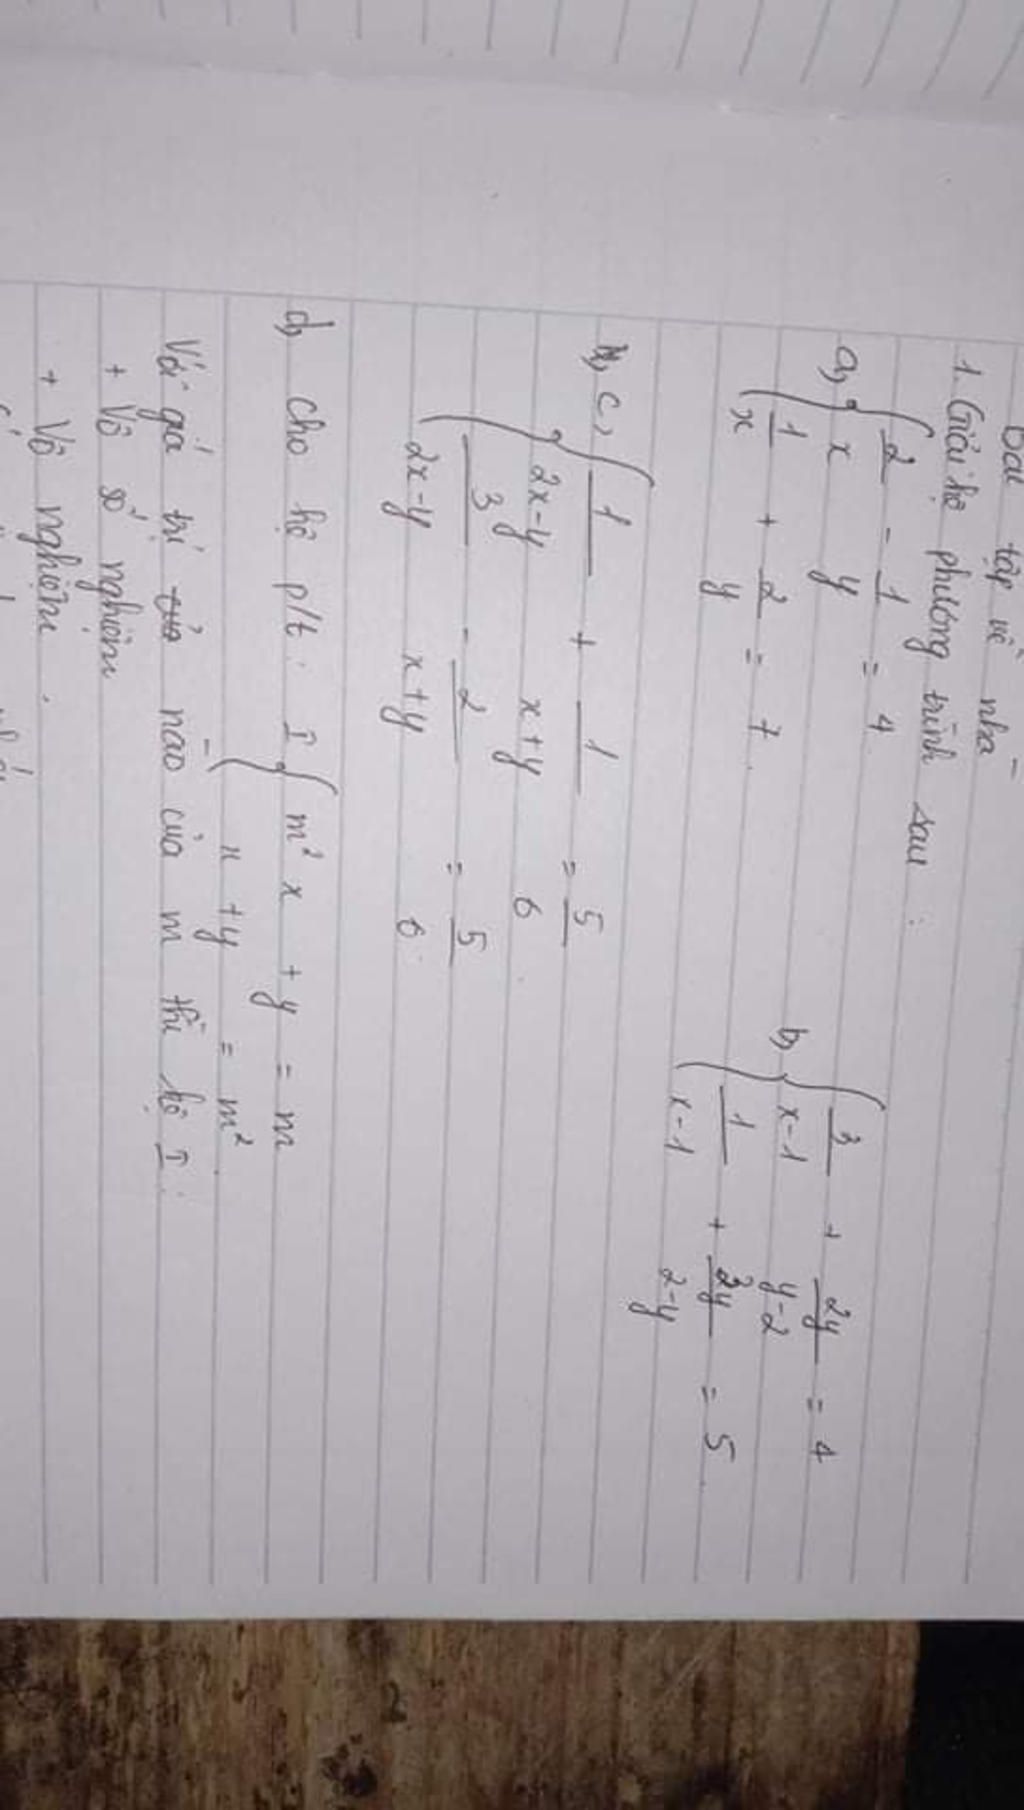 Bài tập về nhà
1. Giải hệ phương trình sau :
a, { 2/x - 1/y = 4
1/x + 2/y = 7.
b, { 3/(x-1) + 2y/(y-2) = 4
1/(x-1) + 3y/(2-y) = 5
c, { 1/(2x-y) + 1/(x+y) = 5/6
3/(2x-y) - 2/(x+y) = 5/6.
d, Cho hệ p/t : I { m²x + y = m
x + y = m²
Với giá trị nào của m thì hệ I :
+ Vô số nghiệm
+ Vô nghiệm.